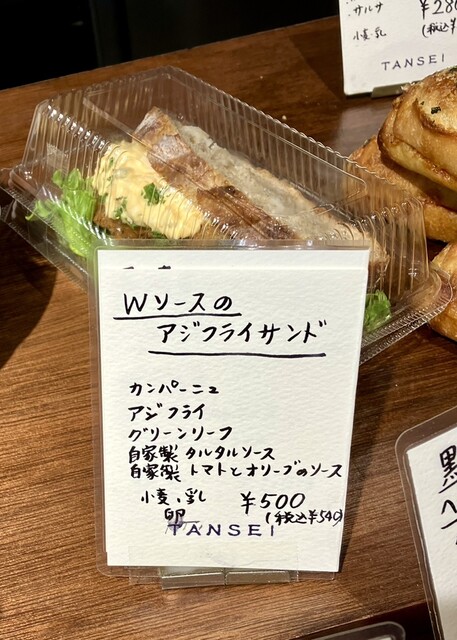 サルサ
¥280
小麦、乳
(税込¥
TANSEI
Wソースの
アジフライサンド
カンパーニュ
アジフライ
グリーンリーフ
自家製 タルタルソース
自家製 トマトとオリーブのソース
小麦、乳
卵
¥500
(税込¥540)
TANSEI
黒